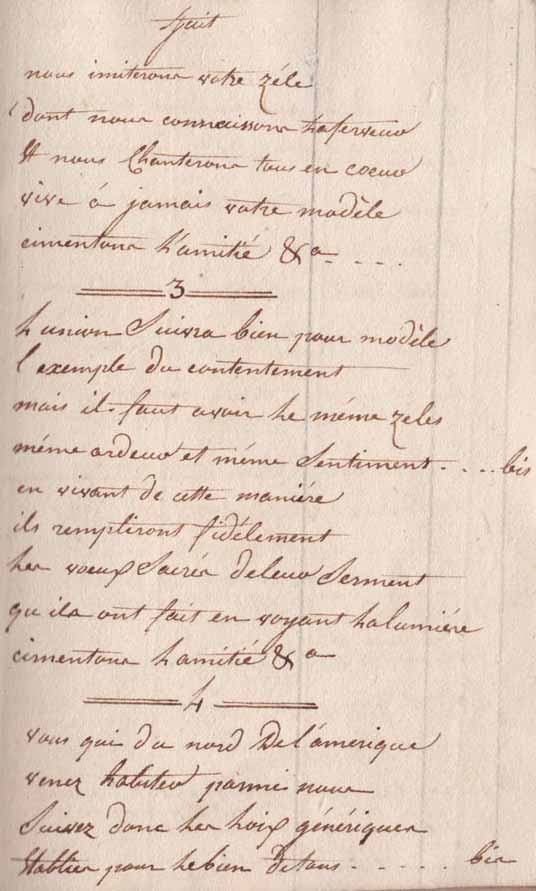 suit
nous imiterons votre zéle
dont nous connaissons la ferveur
Et nous Chanterons tous en coeur
vive á jamais votre modèle
cimentons l'amitié &a - - . .
3
L'union Suivra bien pour modèle
l'exemple du contentement
mais il faut avoir le méme zeles
méme ardeur et méme Sentiment - . . . bis
en vivant de cette maniére
ils rempliront fidélement
les voeux Sacrés de leur Serment
qu ils ont fait en voyant la lumiére
cimentons l amitié & a
4
vous qui du nord De l'ámerique
venez habiter parmi nous
Suivez donc les loix génériques
Etablies pour le bien de tous - - . . - . bis